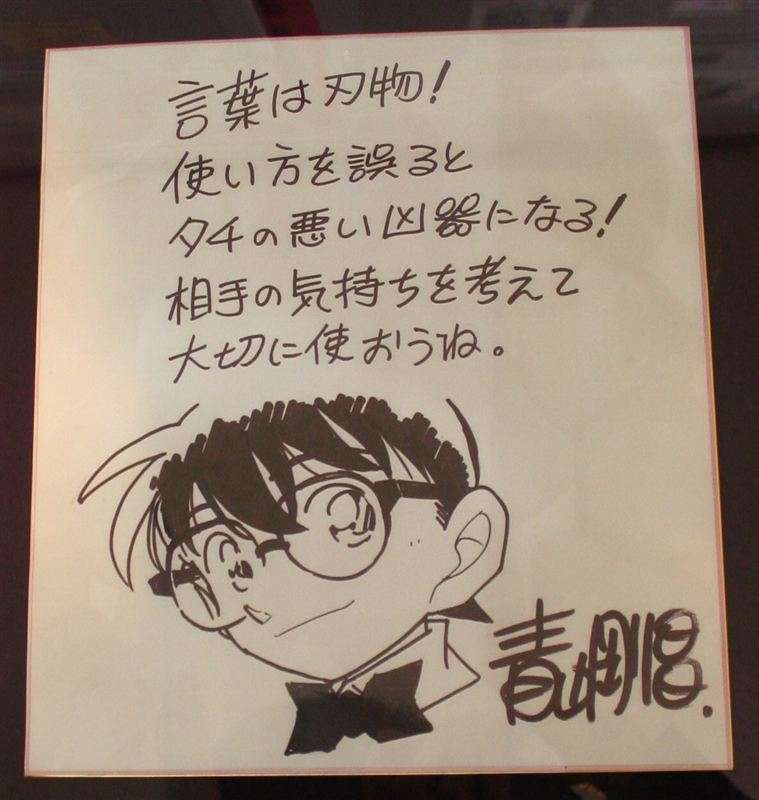 言葉は刃物!
使い方を誤ると
タチの悪い凶器になる!
相手の気持ちを考えて
大切に使おうね。
青山剛昌.